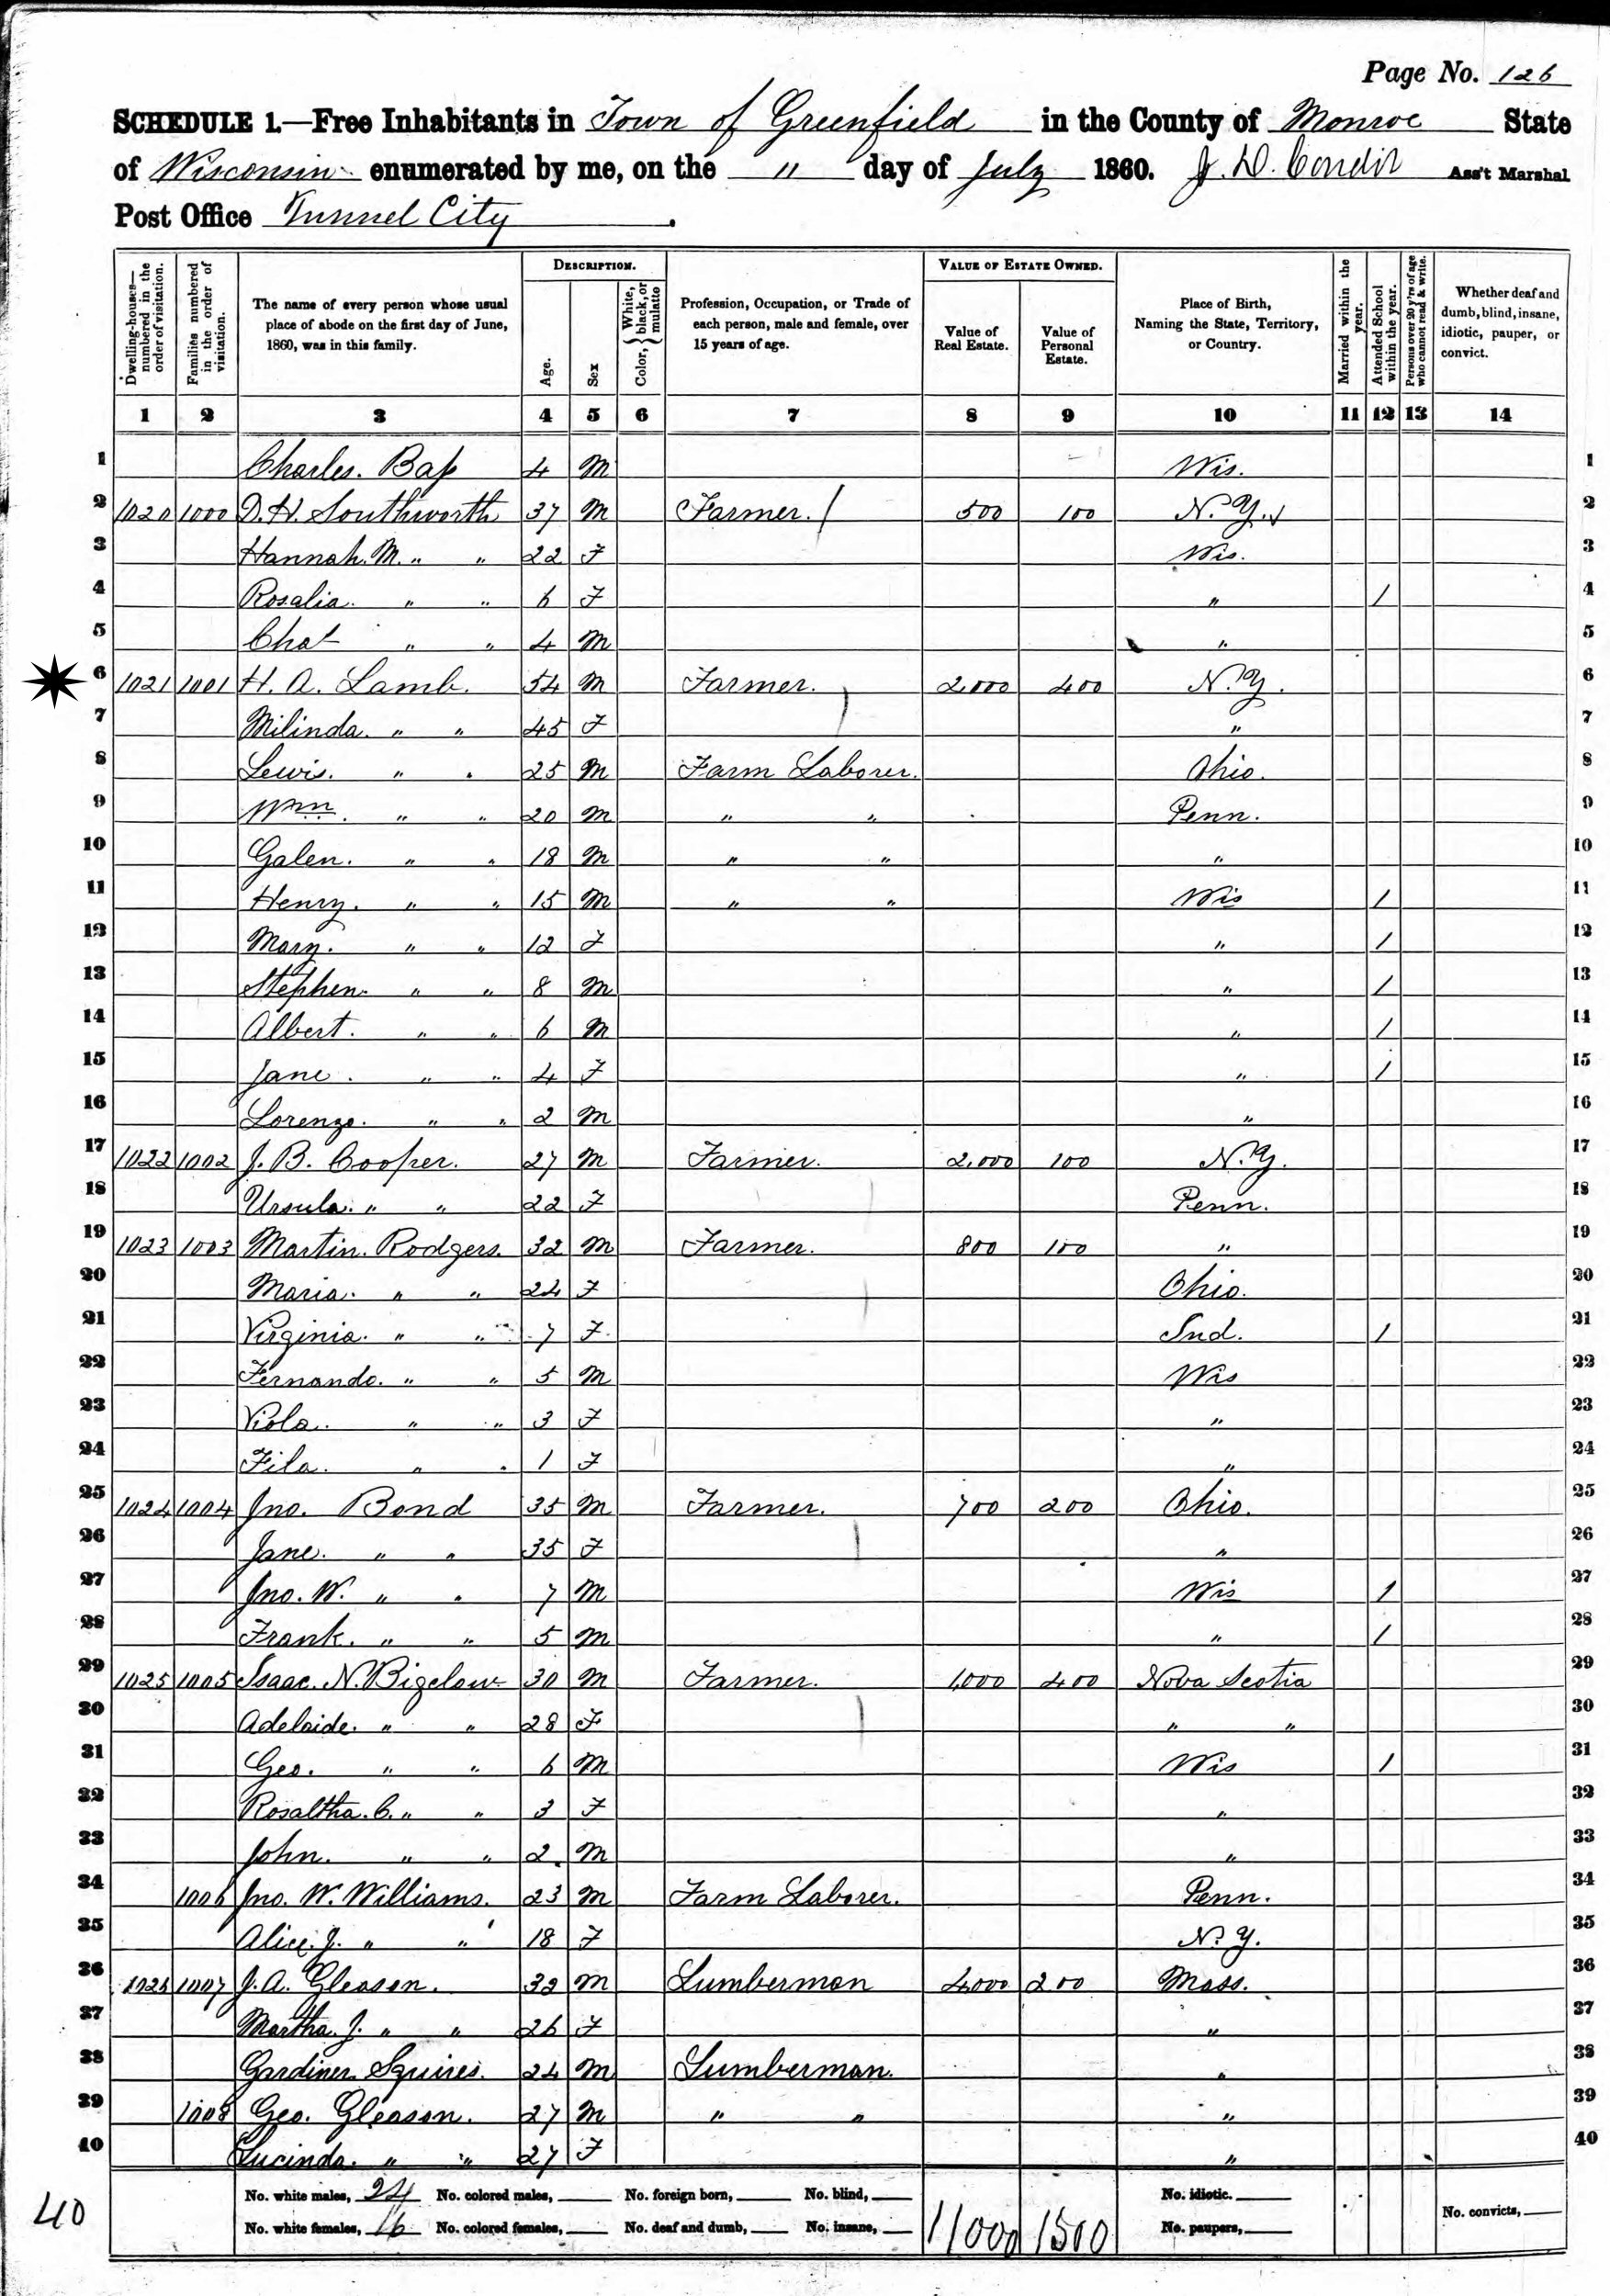 Page No. 126
SCHEDULE 1.—Free Inhabitants in Town of Greenfield in the County of Monroe State
of Wisconsin enumerated by me, on the " day of July 1860. J. D. Condit Ass't Marshal
Post Office Tunnel City.
Dwelling-houses—numbered in the order of visitation. Families numbered in the order of visitation. The name of every person whose usual place of abode on the first day of June, 1860, was in this family. DESCRIPTION. Age. Sex Color, { White, black, or mulatto Profession, Occupation, or Trade of each person, male and female, over 15 years of age. VALUE OF ESTATE OWNED. Value of Real Estate. Value of Personal Estate. Place of Birth, Naming the State, Territory, or Country. Married within the year. Attended School within the year. Persons over 20 y'rs of age who cannot read & write. Whether deaf and dumb, blind, insane, idiotic, pauper, or convict.
1 2 3 4 5 6 7 8 9 10 11 12 13 14
1 Charles. Bass 4 M Wis. 1
2 1020 1000 D. H. Southworth 37 M Farmer. / 500 100 N.Y. 2
3 Hannah. M. " " 22 F Wis. 3
4 Rosalia. " " 6 F " / 4
5 Chat " " 4 M " 5
6 1021 1001 H. A. Lamb. 54 M Farmer. 2,000 400 N.Y. 6
7 Milinda. " " 45 F " 7
8 Lewis. " " 25 M Farm Laborer. Ohio. 8
9 Wm. " " 20 M " " Penn. 9
10 Galen. " " 18 M " " " 10
11 Henry. " " 15 M " " Wis / 11
12 Mary. " " 12 F " / 12
13 Stephen. " " 8 M " / 13
14 Albert. " " 6 M " / 14
15 Jane. " " 4 F " / 15
16 Lorenzo. " " 2 M " 16
17 1022 1002 J. B. Cooper. 27 M Farmer. 2,000 100 N.Y. 17
18 Ursula. " " 22 F Penn. 18
19 1023 1003 Martin. Rodgers. 32 M Farmer. 800 100 " 19
20 Maria. " " 24 F Ohio. 20
21 Virginia. " " 7 F Ind. / 21
22 Fernando. " " 5 M Wis 22
23 Viola. " " 3 F " 23
24 Fila. " " 1 F " 24
25 1024 1004 Jno. Bond 35 M Farmer. 700 200 Ohio. 25
26 Jane. " " 35 F " 26
27 Jno. W. " " 7 M Wis / 27
28 Frank. " " 5 M " / 28
29 1025 1005 Isaac. N. Bigelow 30 M Farmer. 1,000 400 Nova Scotia 29
30 Adelaide. " " 28 F " " 30
31 Geo. " " 6 M Wis / 31
32 Rosaltha. C. " " 3 F " 32
33 John. " " 2 M " 33
34 1006 Jno. W. Williams. 23 M Farm Laborer. Penn. 34
35 Alice. J. " " 18 F N.Y. 35
36 1026 1007 J. A. Gleason. 32 M Lumberman 4,000 200 Mass. 36
37 Martha. J. " " 26 F " 37
38 Gardiner Squires. 24 M Lumberman. " 38
39 1008 Geo. Gleason. 27 M " " " 39
40 Lucinda. " " 27 F " 40
40 No. white males, 24 No. colored males, No. foreign born, No. blind, No. idiotic.
No. white females, 16 No. colored females, No. deaf and dumb, No. insane, 11000 1500 No. paupers, No. convicts,